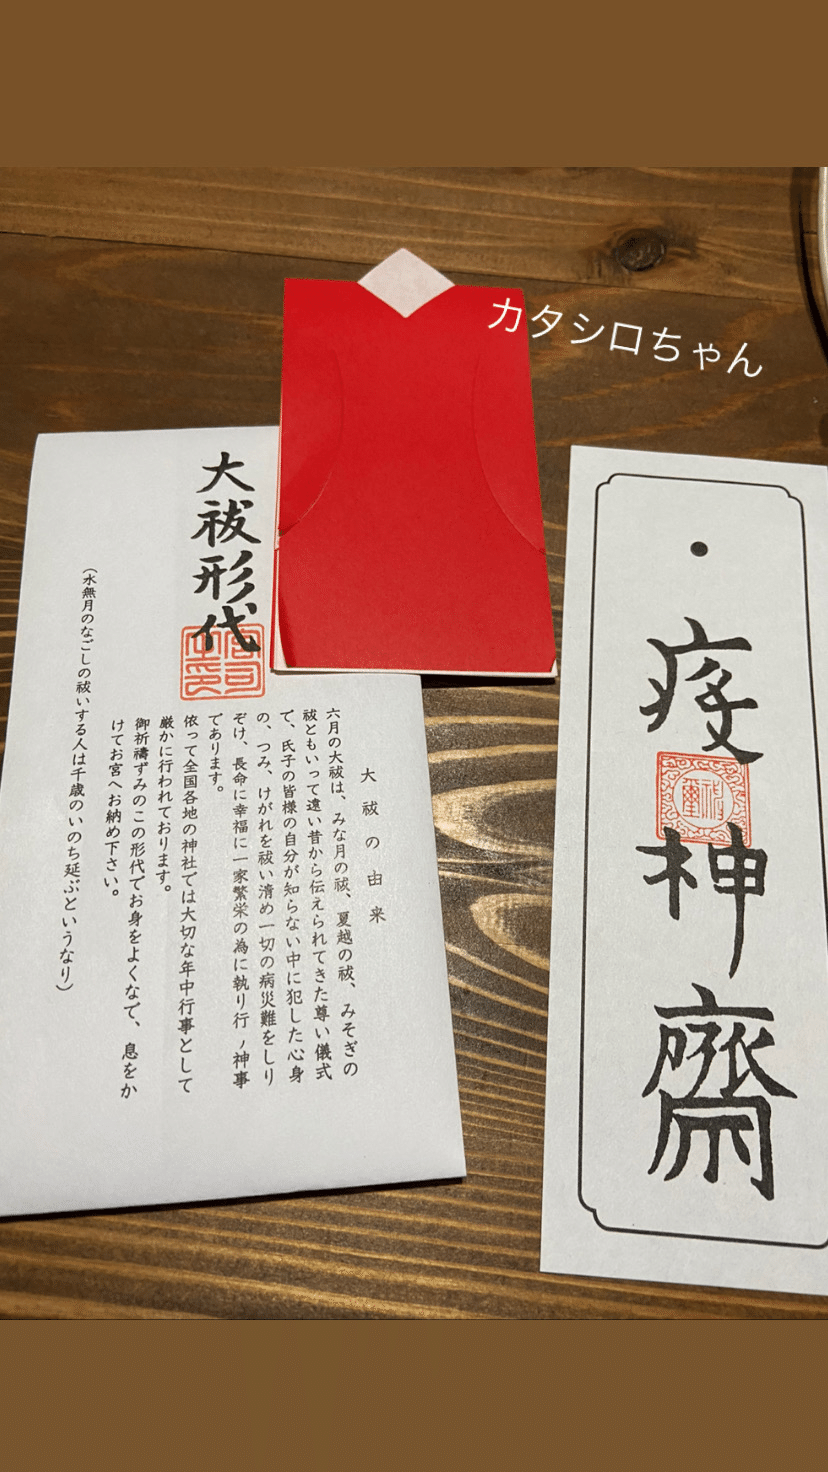 カタシロちゃん
大祓形代
大祓の由来
六月の大祓は、みな月の祓、夏越の祓、みそぎの
祓ともいって遠い昔から伝えられてきた尊い儀式
で、氏子の皆様の自分が知らない中に犯した心身
の、つみ、けがれを祓い清め一切の病災難をしり
ぞけ、長命に幸福に一家繁栄の為に執り行ノ神事
であります。
依って全国各地の神社では大切な年中行事として
厳かに行われております。
御祈禱ずみのこの形代でお身をよくなで、息をか
けてお宮へお納め下さい。
(水無月のなごしの祓いする人は千歳のいのち延ぶというなり)
疫神齋